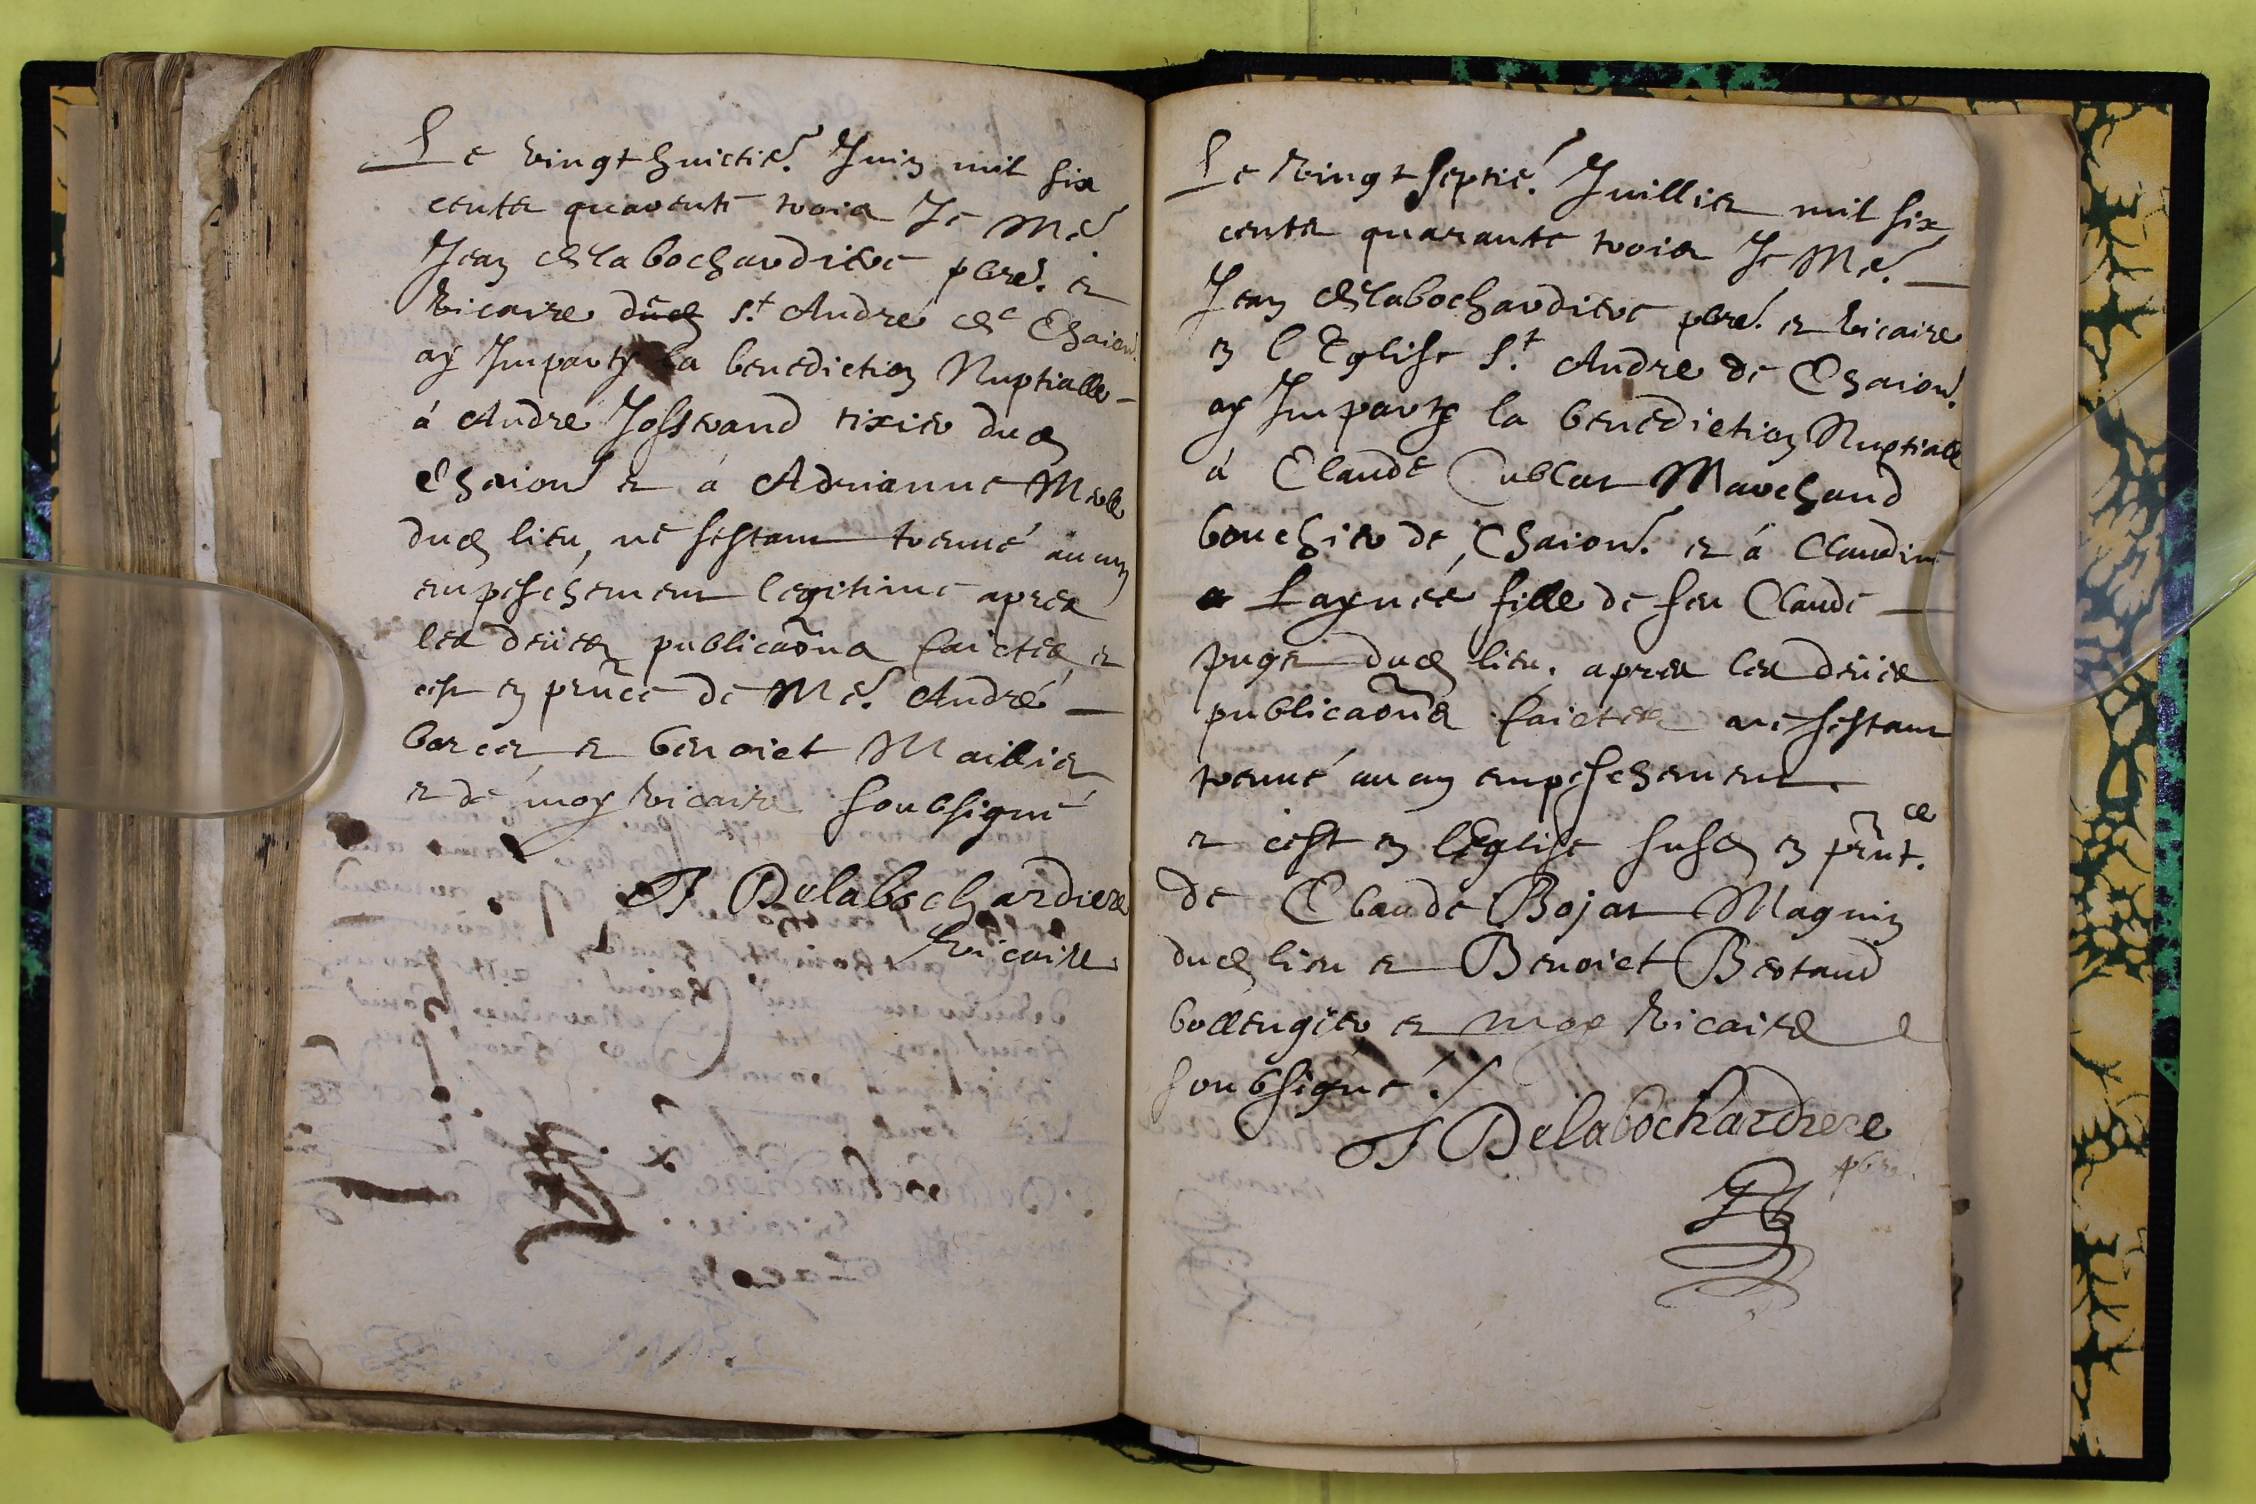 Le vingt huictie. Juin mil six
cents quarente trois Je Me.
Jean delabochardiere pbre. et
vicaire dud St Andre de Chaion.
ay Imparty la benediction Nuptialle
á Andre Josserand tixier dud
Chaion et á Adrianne
dud lieu, ne sestant treuué aucun
empeschement legitime apres
les deües publicaons faictes, et
cest en prnce de Me. André
et benoict Maillier
et de moy vicaire soubsigné
J Delabochardiere
vicaire
Le vingt septie. Juillier mil six
cents quarante trois Je Me.
Jean delabochardiere pbre. et vicaire
en l Eglise St. Andre de Chaion.
ay Imparty la benediction Nuptialle
á Claude Cublat Marchand
bouchier de Chaion. et á Claudine
Laynée fille de feu Claude
puget dud lieu. apres les deües
publicaons faictes ne sestant
treuué aucun empeschement.
et cest en lEglise susd en prnt.ce
de Claude Bojat Magnin
dud lieu et Benoict Bertaud
bollengier et moy vicaire
soubsigné ./
J Delabochardiere
pbre.